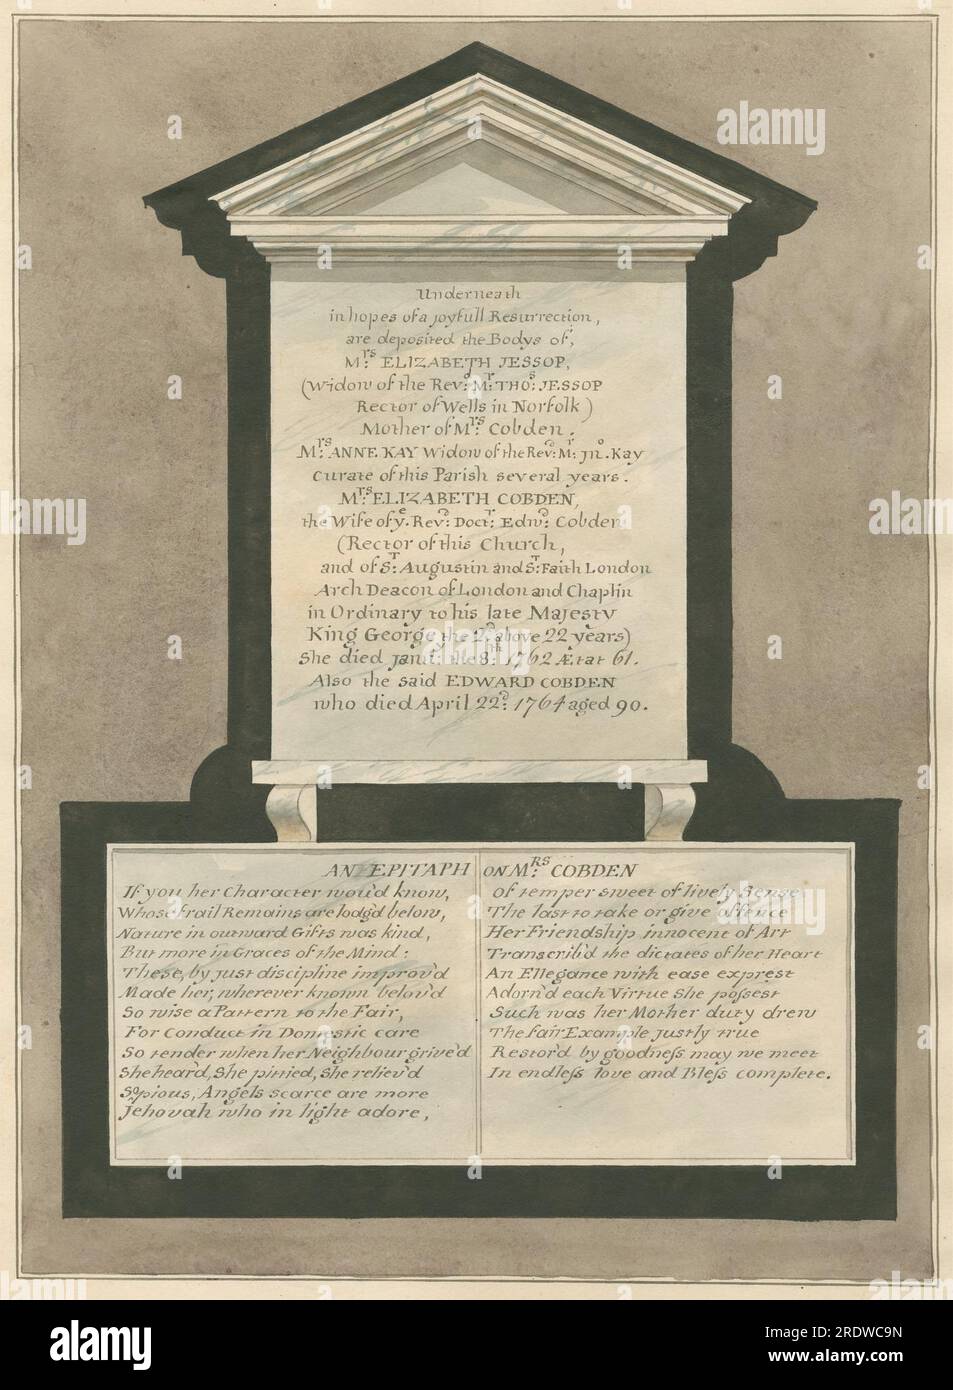 Underneath
in hopes of a joyfull Resurrection,
are deposited the Bodys of,
Mrs. ELIZABETH JESSOP,
(Widow of the Revd. Mr. THOs. JESSOP
Rector of Wells in Norfolk)
Mother of Mrs. Cobden.
Mrs. ANNE KAY Widow of the Revd. Mr. Jno. Kay
Curate of this Parish several years.
Mrs. ELIZABETH COBDEN,
the Wife of ye. Revd. Doctr. Edwd. Cobden
(Rector of this Church,
and of St. Augustin and St. Faith London
Arch Deacon of London and Chaplin
in Ordinary to his late Majesty
King George the 2d. above 22 years)
She died Janry. the 8th. 1762 Ætat 61.
Also the said EDWARD COBDEN
who died April 22d. 1764 aged 90.
AN EPITAPH ON MRS. COBDEN
If you her Character wou'd know,
Whose frail Remains are lodg'd below,
Nature in outward Gifts was kind,
But more in Graces of the Mind:
These, by just discipline improv'd
Made her, wherever known belov'd
So wise a Pattern to the Fair,
For Conduct in Domestic care
So tender when her Neighbour griev'd
She heard, She pitied, She reliev'd
So pious, Angels scarce are more
Jehovah who in light adore,
Of temper sweet of lively Sense
The last to take or give offence
Her Friendship innocent of Art
Transcrib'd the dictates of her Heart
An Ellegance with ease exprest
Adorn'd each Virtue She possest
Such was her Mother duty drew
The fair Example justly true
Restor'd by goodness may we meet
In endless love and Bless complete.
alamy
Image ID: 2RDWC9N
www.alamy.com